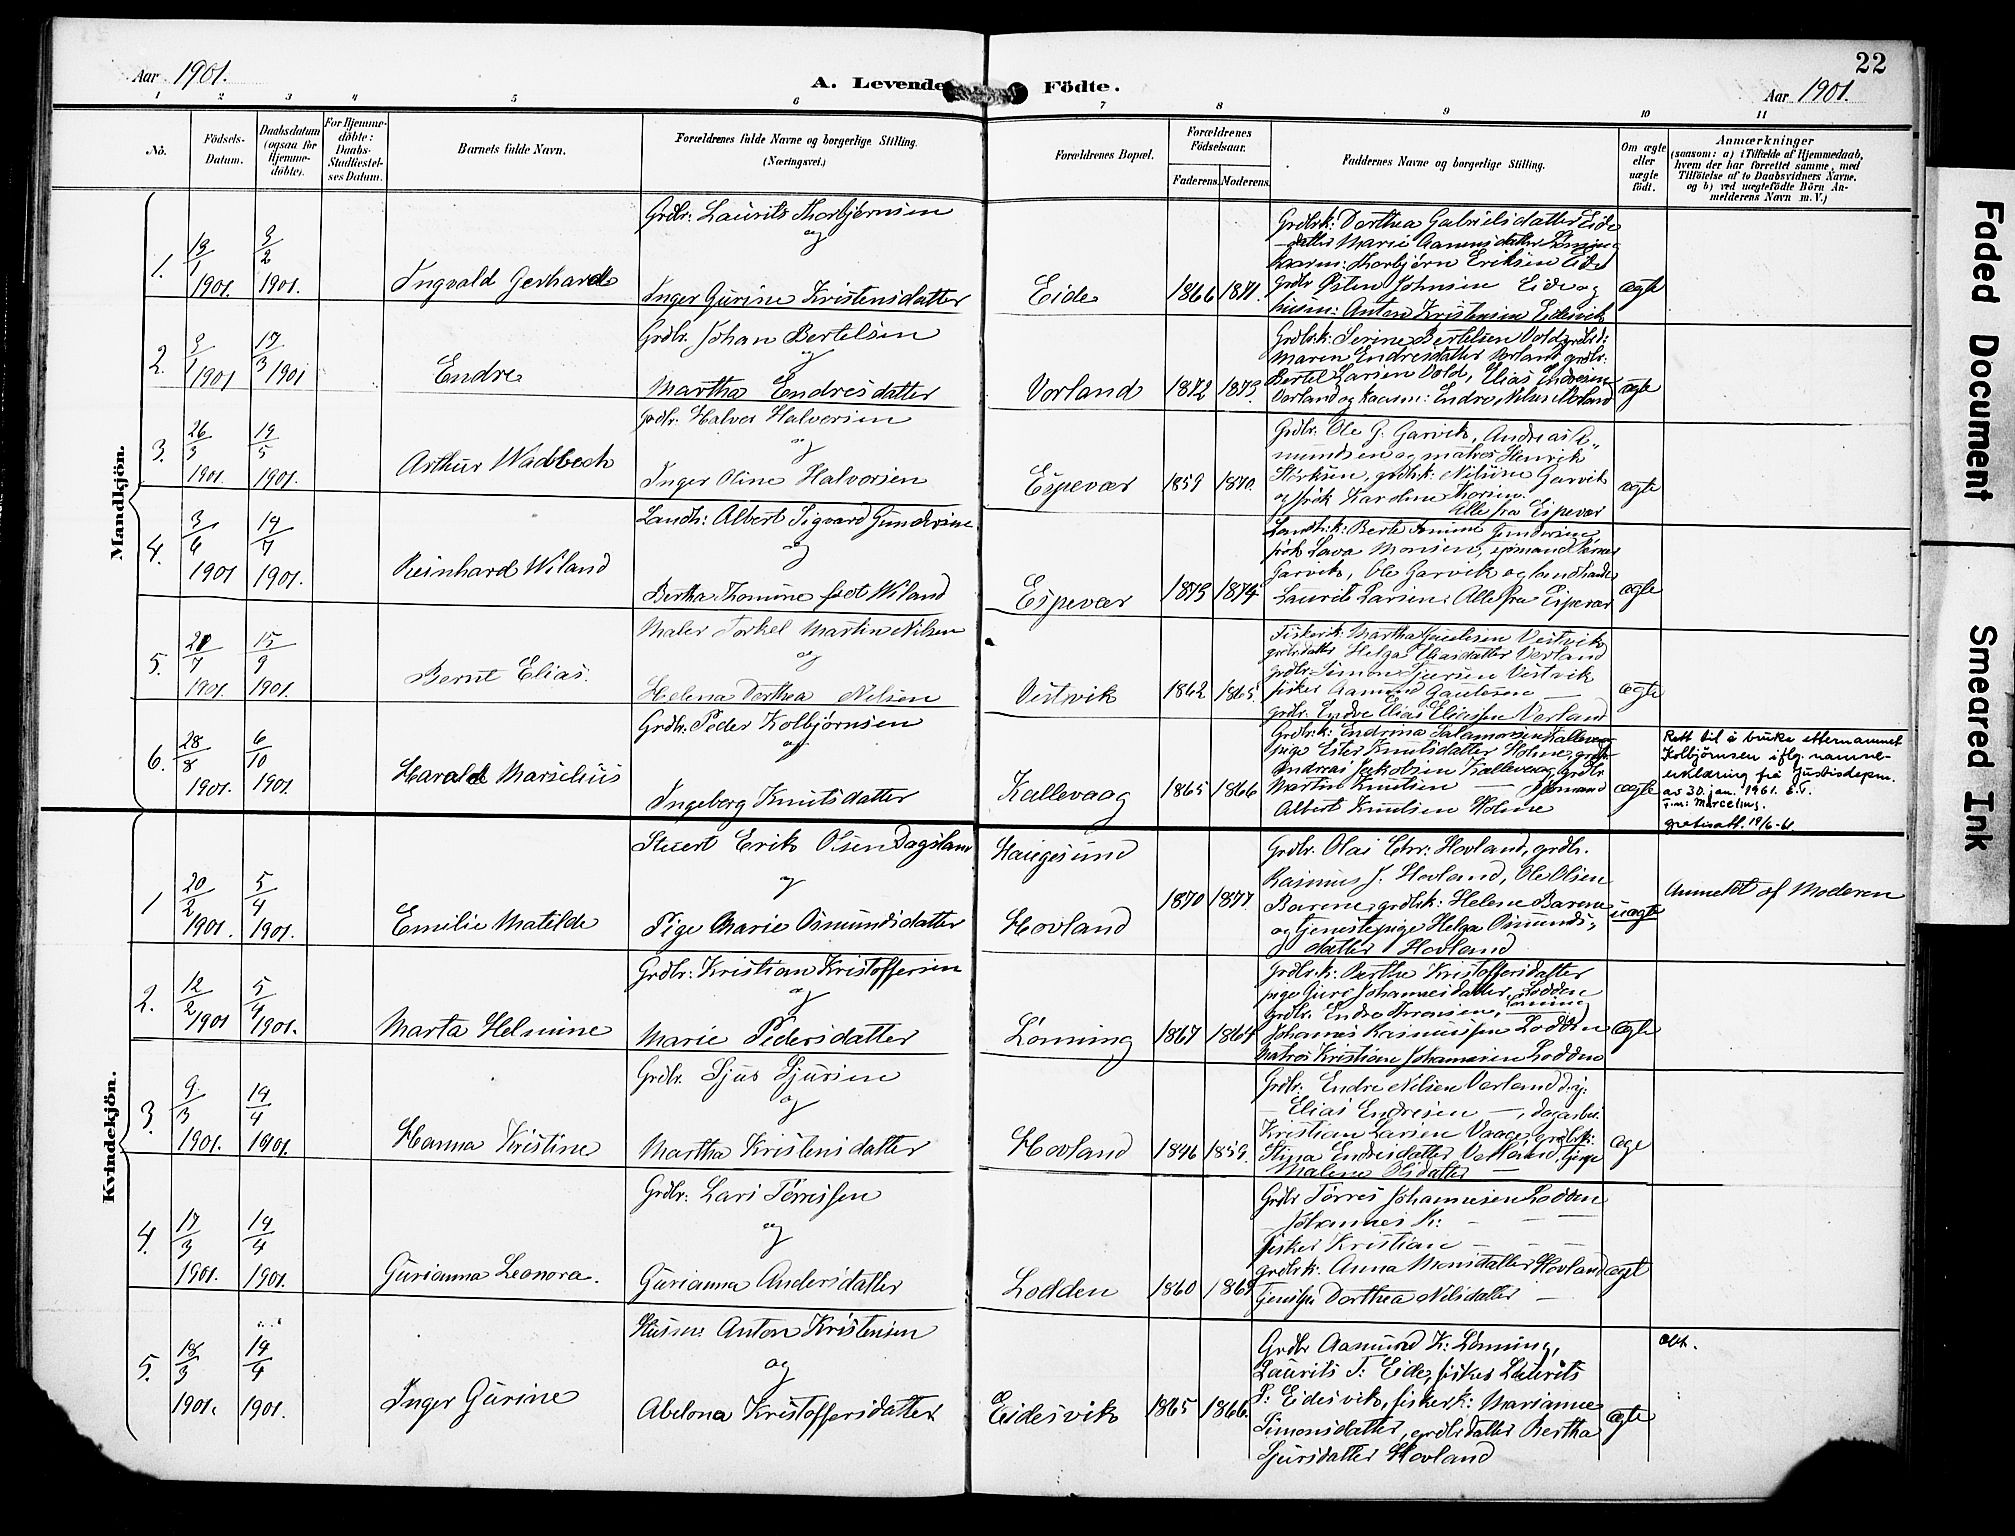 Aar 1901.
A. Levende Födte.
22
Aar 1901.
1 2 3 4 5 6 7 8 9 10 11
No.
Födsels-
Datum.
Daabsdatum
(ogsaa for
Hjemme-
döbte).
For Hjemme-
döbte:
Daabs-
Stadfæstel-
ses Datum.
Barnets fulde Navn.
Forældrenes fulde Navne og borgerlige Stilling.
(Næringsvei.)
Forældrenes Bopæl.
Forældrenes
Födselsaar.
Faderens. Moderens.
Faddernes Navne og borgerlige Stilling.
Om ægte
eller
uægte
födt.
Anmærkninger
(saasom: a) i Tilfælde af Hjemmedaab,
hvem der har forrettet samme, med
Tilföielse af to Daabsvidners Navne.
og b) ved uægtefödte Börn An-
melderens Navn m. V.)
Mandkjön.
1.
19/1 1901.
3/2 1901.
Ingvald Gerhard
Grdbr: Laurits Thorbjørnsen
og
Inger Gurine Kristensdatter
Eide
1866 1871.
Grdbrk: Dorthea Gabrielsdatter Eide
datter Marie Aamunsdatter Lønning
Thorbjørn Eriksen Eide
Grdbr Østen Johnsen Eide og
husm: Anton Kristensen Eidesvik
ægte
2.
3/1 1901
17/3 1901
Endre
Grdbr. Johan Bertelsen
og
Martha Endresdatter
Vorland
1872 1873.
Grdbrk: Serine Bertelsen Vold
Maren Endresdatter Vorland grdbr.
Bertel Larsen Vold, Elias Endresen
Vorland og Kaarm: Endre Nilsen Vorland
ægte
3.
26/3 1901.
19/5 1901.
Arthur Wadbech
Grdbr. Halvor Halvorsen
og
Inger Oline Halvorsen
Espevær
1859 1870.
Grdbr. Ole G. Garvik, Andreas A-
mundsen og matros Henrik
Størksen, grdbrk: Nilsine Garvik
og frøk Karoline Thorsen.
Alle fra Espevær
ægte
4.
3/6 1901
14/7 1901.
Reinhard Wiland
Landh: Albert Sigvard Gundersen
og
Bertha Tomine født Wiland
Espevær
1873 1874
Landhk: Berte Tomine Gundersen
frøk Lava Monsen,
Garvik, Ole Garvik og landhandl
Laurits Larsen. Alle fra Espevær
ægte
5.
21/7 1901.
15/9 1901.
Bernt Elias.
Maler Torkel Martin Nilsen
og
Helena Dorthea Nilsen
Vestvik
1862 1865.
Fiskerk: Martha Gautesen Vestvik
grdbrdatter Helga Eliasdatter Vorland
grdbr: Simon Sjursen Vestvik
fisker Aamund Gautesen —
grdbr. Endre Elias Eliassen Vorland
ægte
6.
28/8 1901.
6/10 1901.
Harald Marselius
Grdbr. Peder Kolbjørnsen
og
Ingeborg Knutsdatter
Kallevaag
1865 1866
Grdbrk: Endrina Salamonsen Kallevaag
pige Ester Knutsdatter Holme, grdbr
Andreas Jakobsen Kallevaag, Grdbr
Martin Knutsen —
Albert Knutsen Holme
ægte
Rett til å bruke etternamnet
Kolbjørnsen iflg. namne-
erklæring frå Justisdepm.
av 30. jan. 1961. E.V.
F.m: Marcelius.
gratisatt. 19/6-61
Kvindekjön.
1
20/2 1901.
5/4 1901.
Emilie Matilde
Stuert Erik Olsen Dagsland
og
Pige Marie Osmundsdatter
Haugesund
Hovland
1870 1877
Grdbr. Olai Chr: Hovland, grdbr.
Rasmus J. Hovland, Ole Olsen
Barene, grdbrk: Helene Barene
og tjenestepige Helga Osmunds-
datter Hovland
uægte
Anmeldt af Moderen
2.
12/2 1901
5/4 1901.
Marta Helmine
Grdbr: Kristian Kristoffersen
og
Marie Pedersdatter
Lønning
1867 1864
Grdbrk: Berthe Kristoffersdatter
pige Guri Johannesdatter, Lodden
grdbr. Endre Aronsen, Lønning
Johannes Rasmussen Lodden
Matros Kristian Johannesen Lodden
ægte
3.
9/3 1901.
14/4 1901.
Hanna Kristine
Grdbr. Sjur Sjursen
og
Martha Kristensdatter
Hovland
1846 1859.
Grdbr. Endre Nilsen Vorland d.y.
— Elias Endresen —, dagarb.
Kristian Larsen Vaage, grdbrk:
Stina Endresdatter Vorland, tjpige
Malene Olsdatter —
ægte
4.
17/3 1901.
14/4 1901.
Gurianna Leonora.
Grdbr: Lars Tørressen
og
Gurianna Andersdatter
Lodden
1860 1868
Grdbr Tørres Johannesen Lodden
— Johannes K: — —
fisker Kristian — — —
grdbrk: Anna Monsdatter Hovland
Tjenstp Dorthea Nilsdatter —
ægte
5.
18/3 1901.
14/4 1901.
Inger Gurine
Husm: Anton Kristensen
og
Abelona Kristoffersdatter
Eidesvik
1865 1866.
Grdbr Aasmund K: Lønning,
Laurits T: Eide, fisker Laurits
S: Eidesvik, fiskerk: Marianne
Simonsdatter, grdbrdatter Bertha
Sjursdatter Hovland
ægte
att.
Faded Document
Smeared Ink